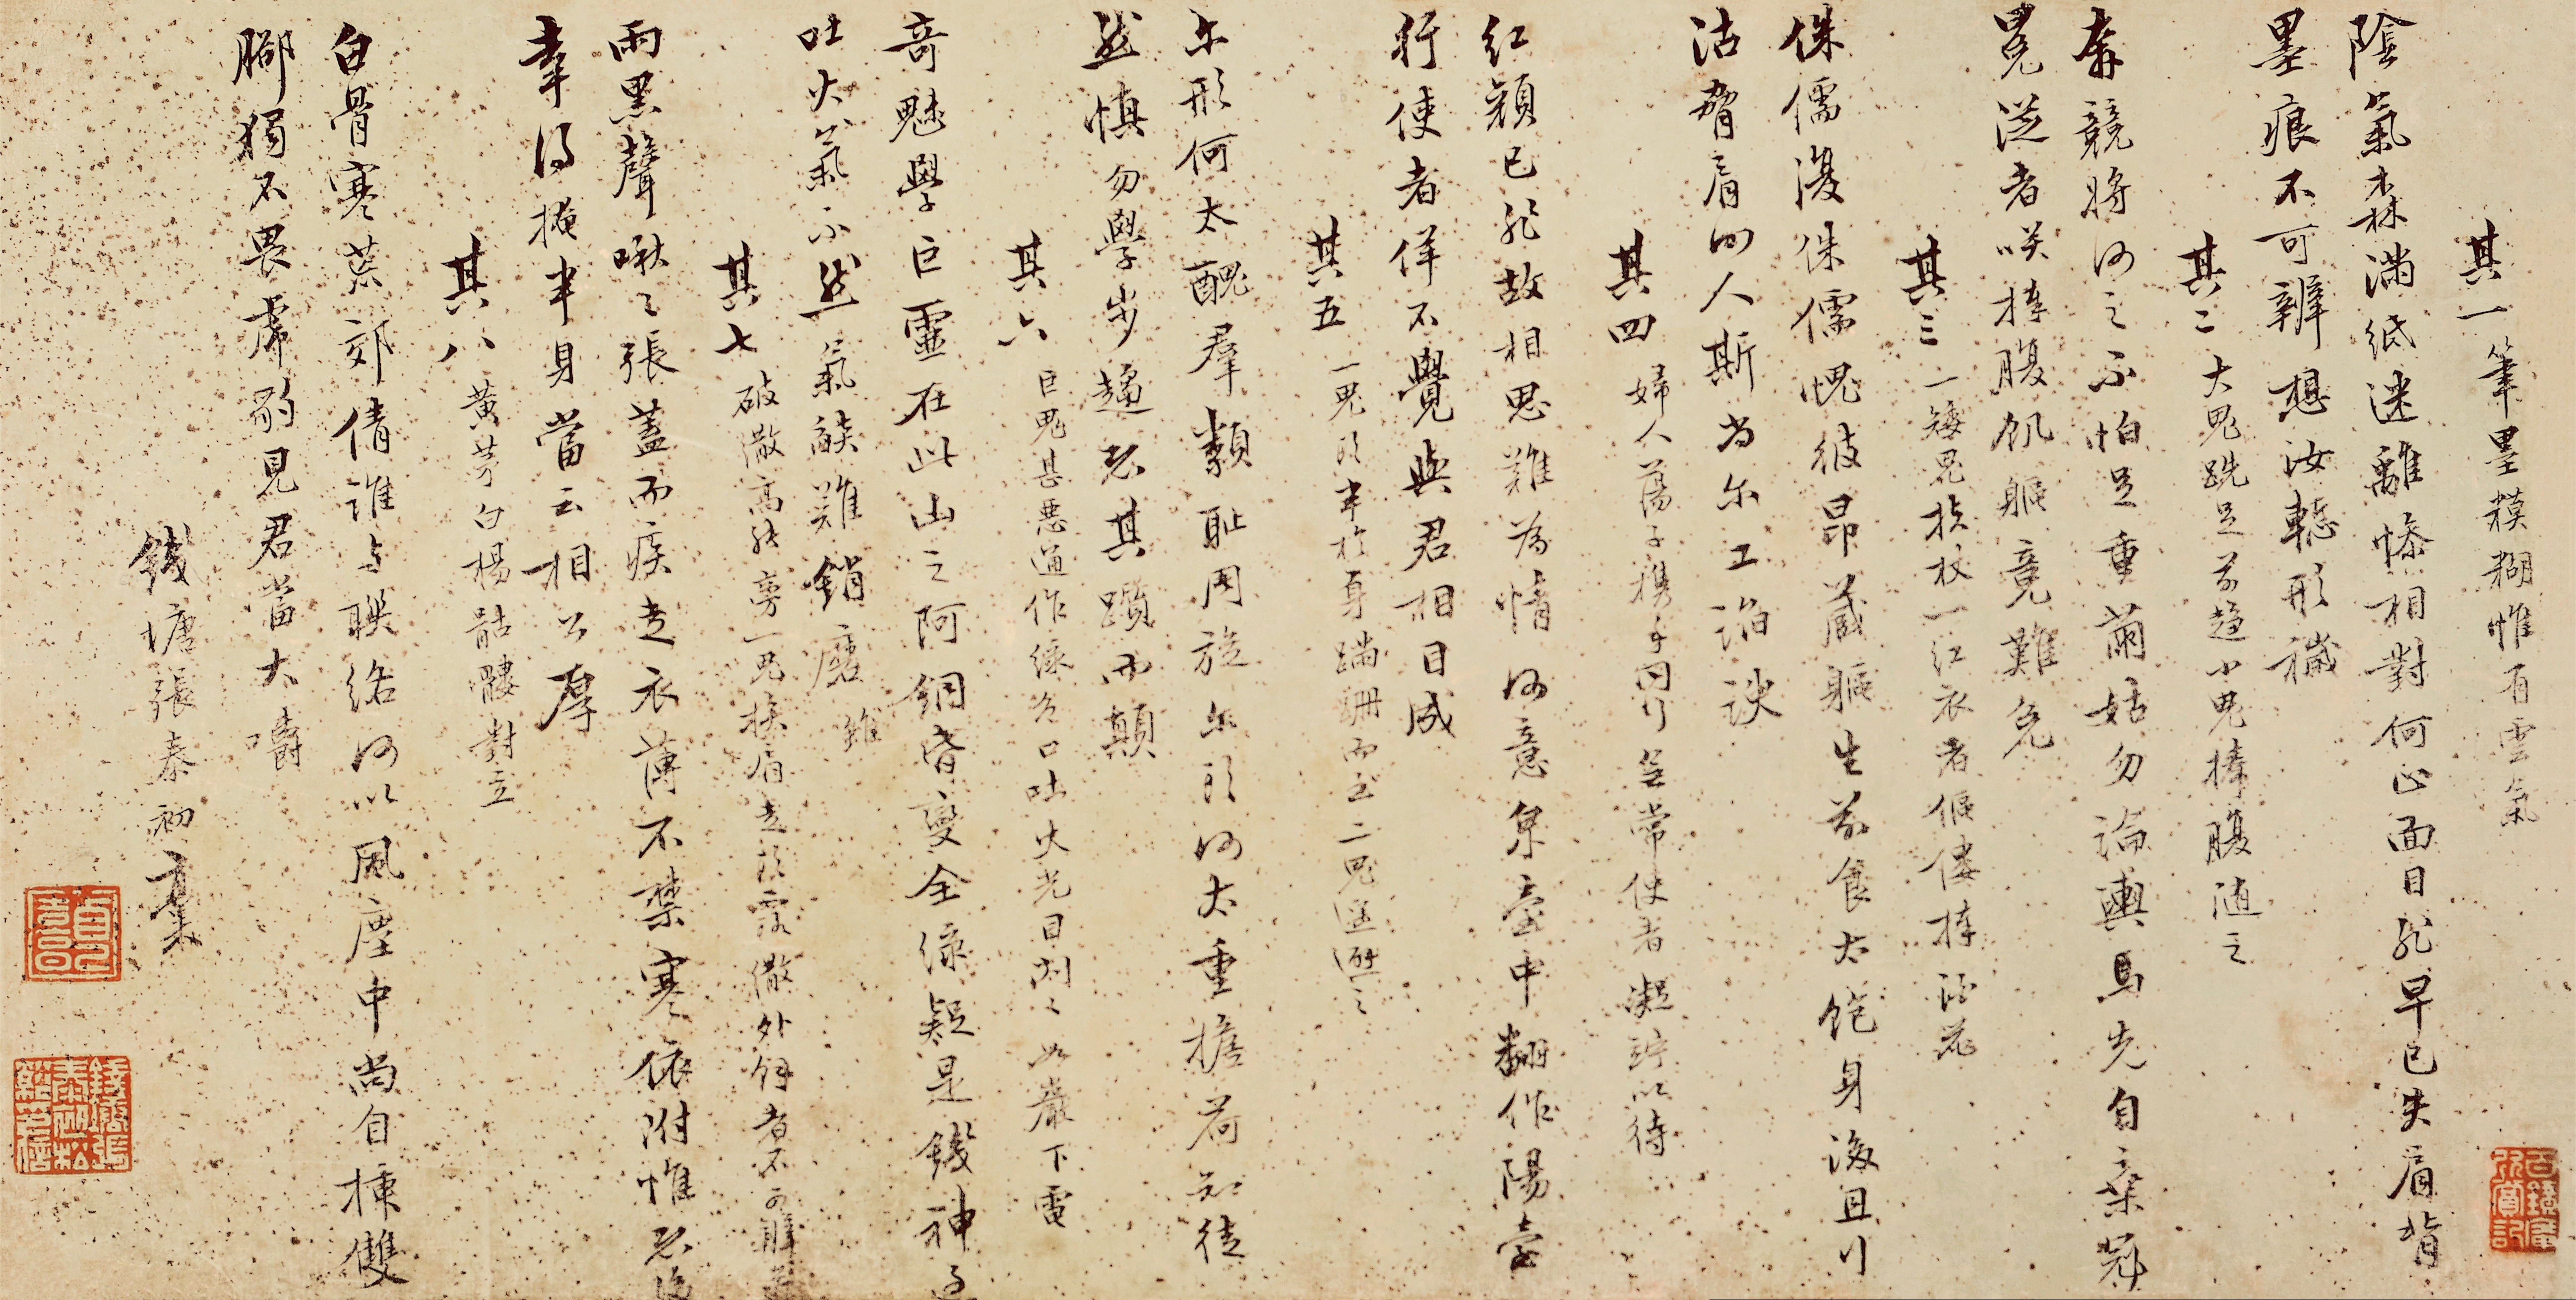 其一 筆墨糢糊惟有雲氣
陰氣森滿紙迷離慘相對何心面目玭早已失肩背
墨痕不可辨想汝轗形穢
其二 大鬼跣足前趨小鬼捧腹隨之
奔競將何之不怕足重繭姑勿論輿馬先自棄冠
冕從者咲捧腹飢軀竟難免
其三 一矮鬼扶杖一紅衣者傴僂捧
侏儒復侏儒愧彼昂藏軀生前食太飽身後且行
沽脅肩何人斯為尔工諂諛
其四 婦人蕩子携手同行無常使者凝竚以待
紅顏已非故相思難為情何意泉臺中翻作陽臺
行使者佯不覺與君相目成
其五 一鬼頭半於身蹣跚而至二鬼迴避之
尔形何太醜羣類恥周旋尔頭何太重擔荷知徒
然慎勿學步趨老其躓而顛
其六 巨鬼甚惡通作綠色口吐火光目閃々如巖下電
奇魅學巨靈在此山之阿銅睂變全綠疑是錢神過
吐火氣不然氣燄難銷磨
其七 破傘高張旁一鬼挨肩走頭露傘外餘者不可辨
雨黑聲啾々張蓋而疾走衣薄不禁寒依附惟恐後
幸得掩半身當云相公厚
其八 黃茅白楊骷髏對立
白骨寒荒郊倩誰与聯絡何以風塵中尚自揀雙
脚獨不畏虎豹見君當大嚼
錢塘張泰初稾